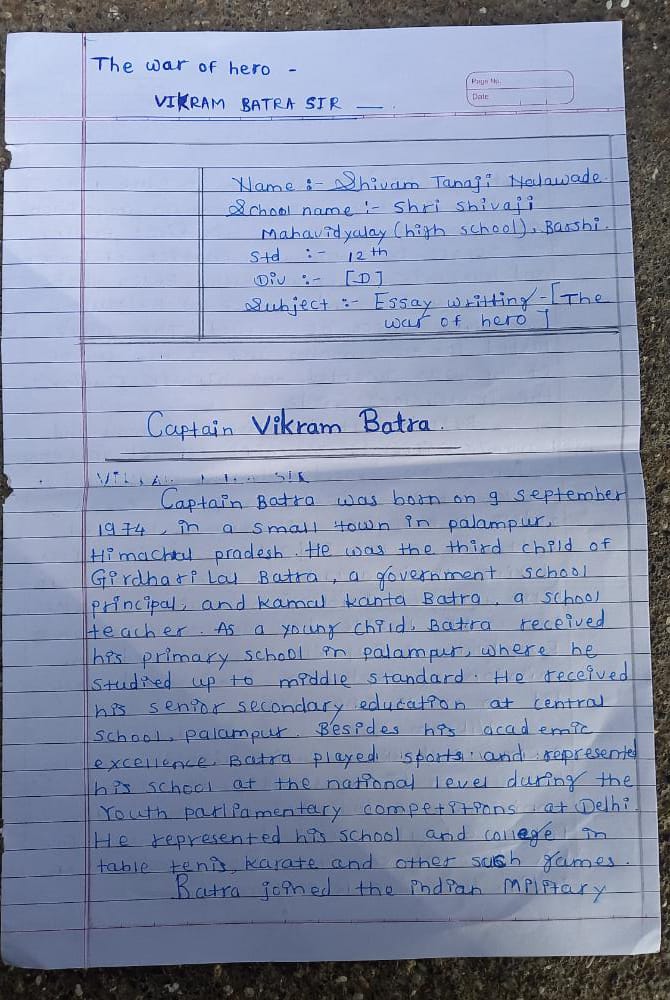 The war of hero -
VIKRAM BATRA SIR —.
Page No.
Date
Name :- Shivam Tanaji Nalawade.
School name :- Shri Shivaji
Mahavidyalay (high school), Barshi.
Std :- 12th
Div :- [D]
Subject :- Essay writting - [The
war of hero]
Captain Vikram Batra.
SIR
Captain Batra was born on 9 september
1974, in a small town in palampur,
Himachal pradesh. He was the third child of
Girdhari Lal Batra, a government school
principal, and kamal kanta Batra, a school
teacher. As a young child, Batra received
his primary school in palampur, where he
studied up to middle standard. He received
his senior secondary education at central
school, palampur. Besides his academic
excellence, Batra played sports and represented
his school at the national level during the
Youth parliamentary competitions at Delhi.
He represented his school and college in
table tenis, karate and other such games.
Batra joined the indian Military